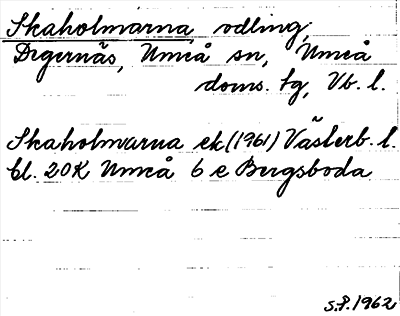 Skaholmarna, odling;
Degernäs, Umeå sn, Umeå
doms. tg, Vb. l.
Skaholmarna ek (1961) Västerb. l.
bl. 20K Umeå 6 e Bergsboda
S.P. 1962